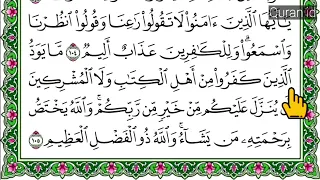 Quran.id
يَٰٓأَيُّهَا ٱلَّذِينَ ءَامَنُوا۟ لَا تَقُولُوا۟ رَٰعِنَا وَقُولُوا۟ ٱنظُرْنَا
وَٱسْمَعُوا۟ ۗ وَلِلْكَٰفِرِينَ عَذَابٌ أَلِيمٌ ١٠٤ مَّا يَوَدُّ
ٱلَّذِينَ كَفَرُوا۟ مِنْ أَهْلِ ٱلْكِتَٰبِ وَلَا ٱلْمُشْرِكِينَ
أَن يُنَزَّلَ عَلَيْكُم مِّنْ خَيْرٍ مِّن رَّبِّكُمْ ۗ وَٱللَّهُ يَخْتَصُّ
بِرَحْمَتِهِۦ مَن يَشَآءُ ۚ وَٱللَّهُ ذُو ٱلْفَضْلِ ٱلْعَظِيمِ ١٠٥